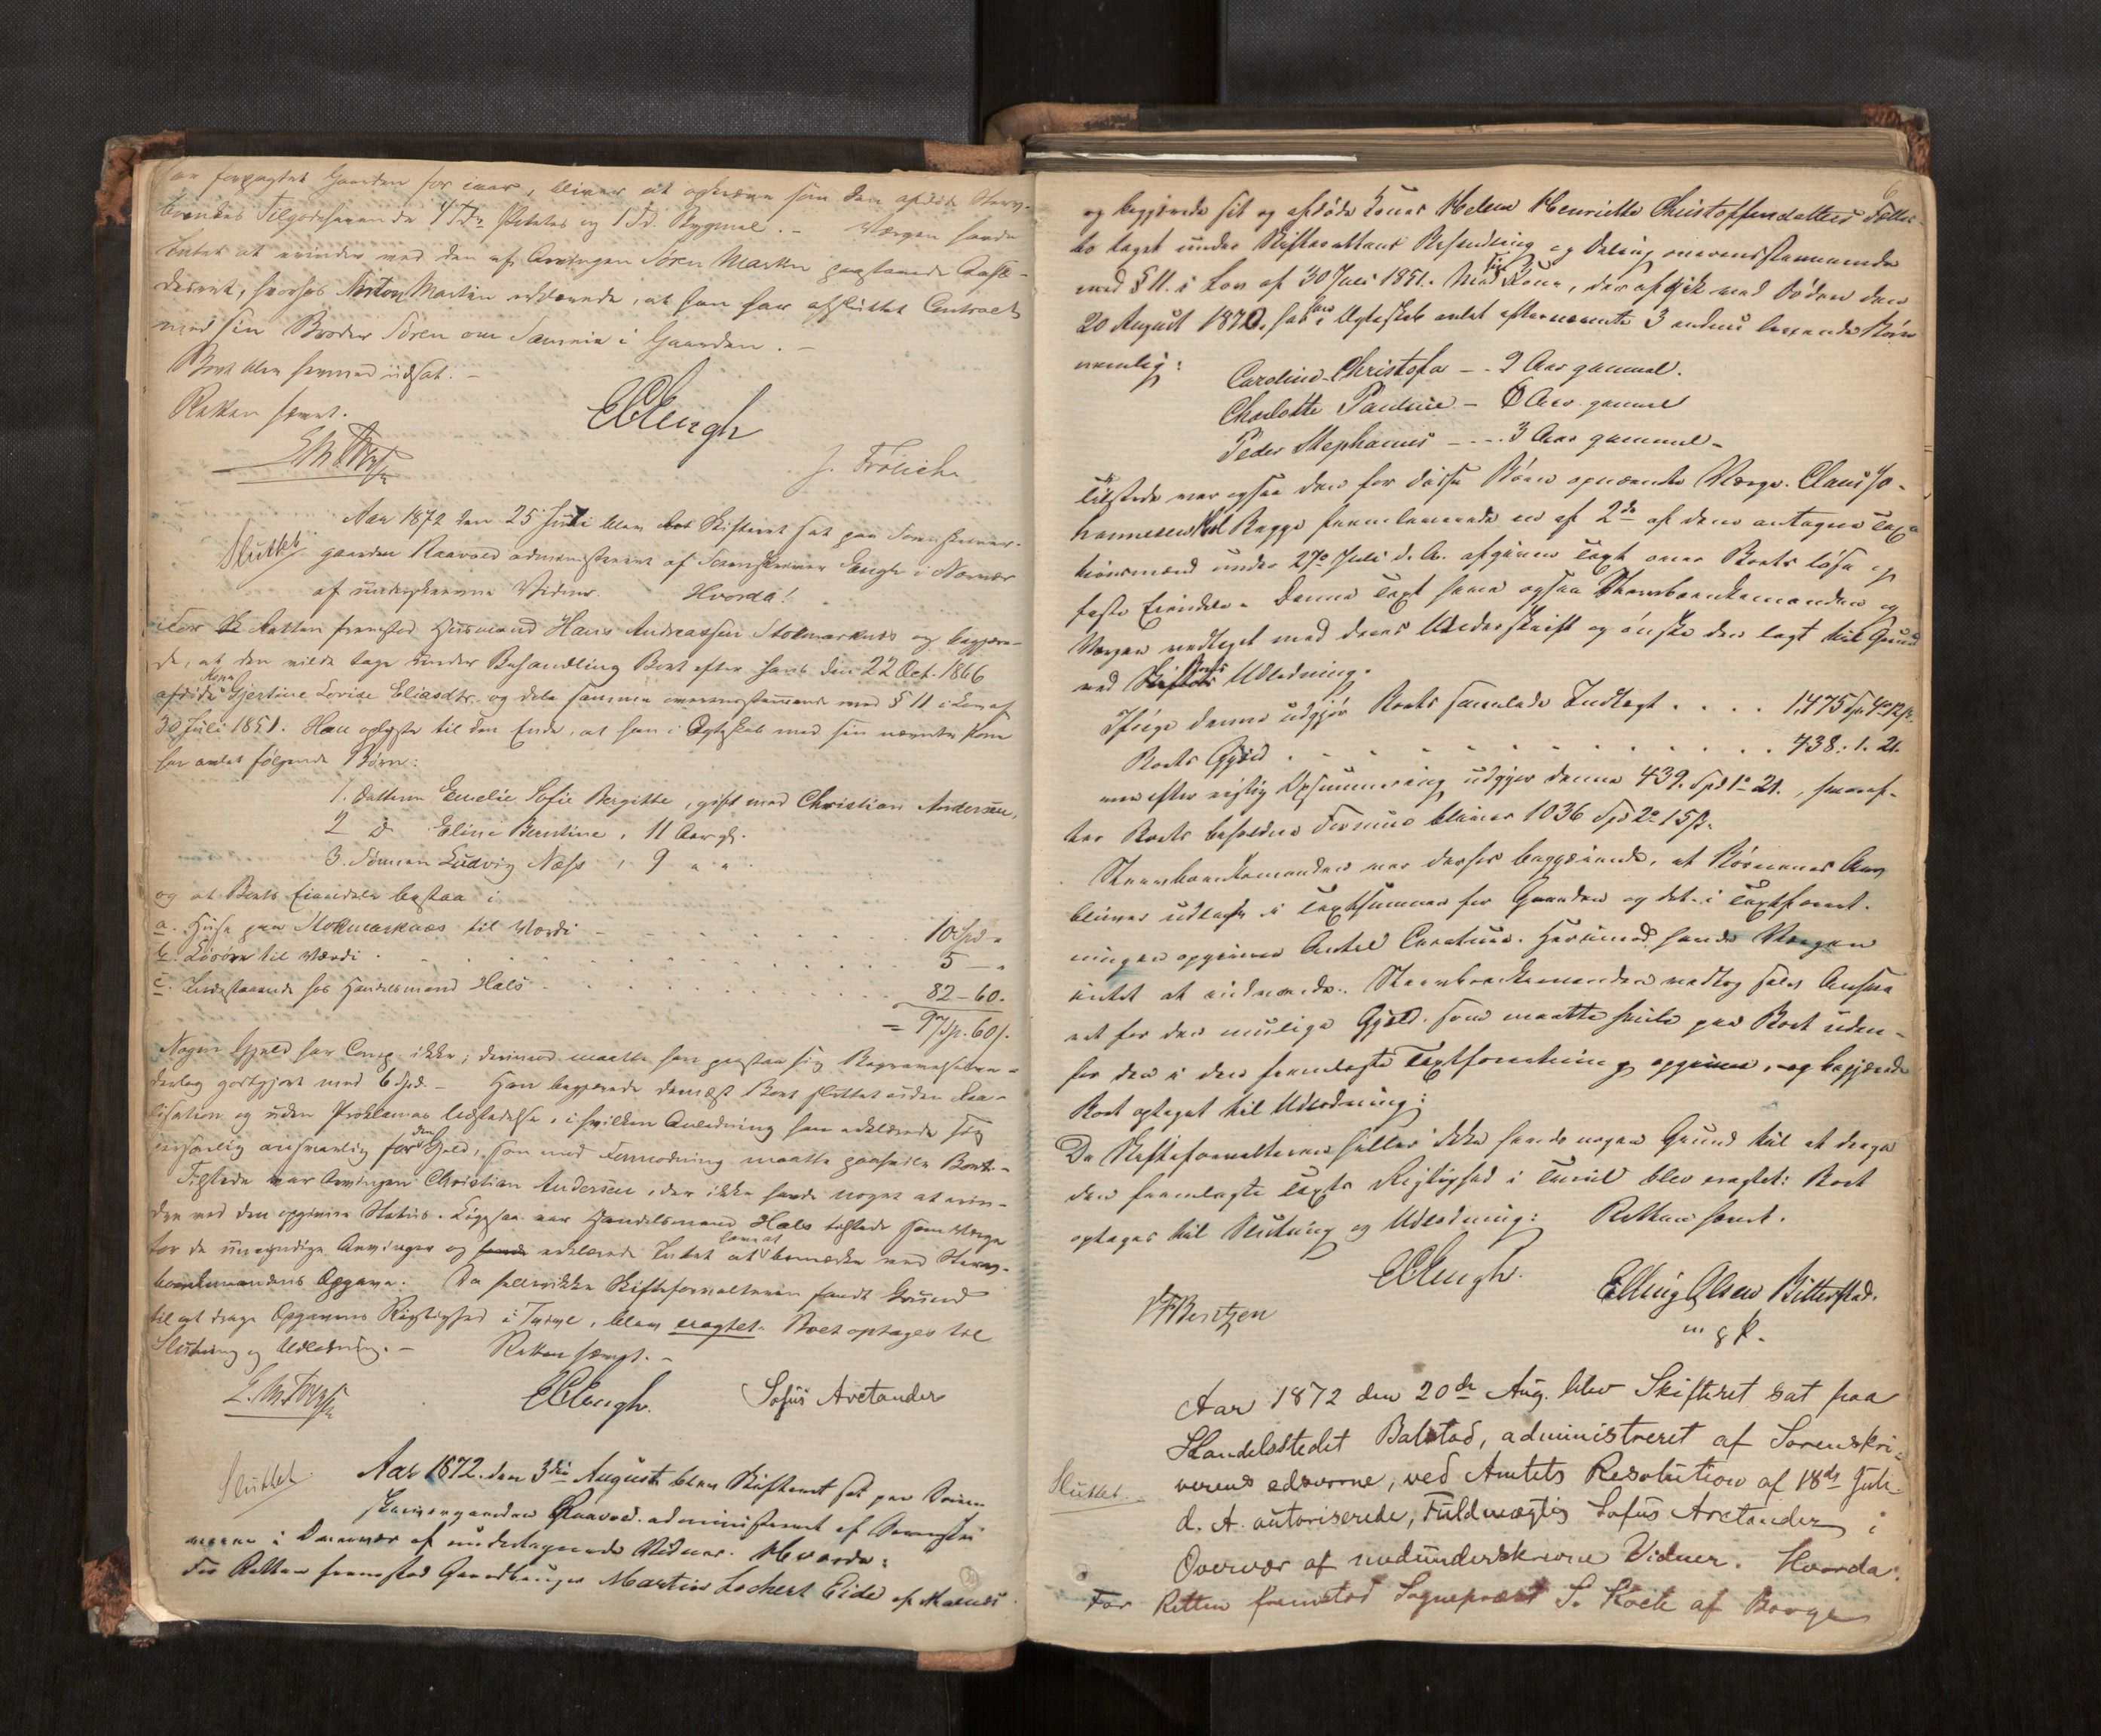 har forpagtet Gaarden for iaar, bliver at opføre som den afdøde Stærv-
boendes Tilgodehavende 4 Tdr Poteter og 1 Td. Bygmel. - Værgen havde
Intet at erindre ved den af Arvingen Søren Martin paastaaede
hvorhos Martin erklærede, at han har afsluttet Contract
med sin Broder Søren om i Gaarden. -
Boet blev hermed udsat. -
Retten hævet.
EBEngh
J. Frölich
Sluttet
Aar 1872 den 25 Juli blev Skifteret sat paa Sorenskriver-
gaarden Raavold administreret af Sorenskriver Engh i Nærvær
af underskrevne Vidner. Hvorda!
For Retten fremstod Husmand Hans Andreassen Stokmarknæs og begjære-
de, at den vilde tage under Behandling Boet efter hans den 22 Oct. 1866
afdøde Kone Gjertine Lovise Eliasdtr. og dele samme overensstemmende med § 11 i Lov af
30 Juli 1851. Han oplyste til den Ende, at han i Ægteskab med sin nævnte Kone
har avlet følgende Børn:
1. Datteren Emelie Sofie Bergitte, gift med Christian Andersen,
2 Do Eline Berntine, 11 Aar gl.
3. Sønnen Ludvig Næss, 9 " " .
og at Boets Eiendele bestaa i
a. Huse paa Stokmarknæs til Værdi - 10 Spd "
b. Løsøre til Værdi . 5 - "
c. Indestaaende hos Handelsmand Hals . 82 - 60.
= 97 Sp. 60 s.
Nogen Gjæld har Comp. ikke; derimod maatte han paastaa sig Begravelsesom-
gotgjort med 6 Spd. - Han begjærede dernæst Boet sluttet uden Rea-
lisation og uden Proklamas Udstedelse, i hvilken Anledning han erklærede sig
personlig ansvarlig for den Gjæld, som mod Formodning maatte paahvile Boet. -
Tilstede var Arvingen Christian Andersen, der ikke havde noget at erin-
dre ved den opgivne Status. Ligesaa var Handelsmand Hals tilstede som Værge
for de umyndige Arvinger og erklærede Intet at have at bemærke ved Stærv-
boenkemandens Opgave. Da heller ikke Skifteforvalteren fandt Grund
til at drage Opgavens Rigtighed i Tvivl, blev eragtet: Boet optages til
Slutning og Udlodning. - Retten hævet. -
EBEngh. Sofus Arctander
Sluttet
Aar 1872. den 3die August blev Skifteret sat paa Soren-
skrivergaarden Raavold administreret af Sorenskri-
veren i Overvær af undertegnede Vidner. Hvorda:
For Retten fremstod Gaardbruger Martin Lochert Eide af Malnæs
6
og begjærede sit og afdøde Kones Helene Henriette Christoffersdatters Fælles-
bo taget under Skifterettens Behandling og Deling overensstemmende
med § 11. i Lov af 30 Juli 1851. Med sin Kone, der afgik ved Døden den
20 August 1870, har han i Ægteskab avlet efternævnte 3 endnu levende Børn
nemlig:
Caroline Christofa - - 9 Aar gammel.
Charlotte Pauline - 6 Aar gammel
Peder Stephanus - - - 3 Aar gammel -
Tilstede var ogsaa den for disse Børn opnævnte Værge. Claus Jo-
hannesen Bagge fremlæverede en af 2de af dem antagne Taxa
tionsmænd under 27de Juli d. A. afgiven Taxt over Boets løse og
faste Eiendele. Denne Taxt have ogsaa Stærvboenkemanden og
Værgen vedtaget med deres Underskrift og ønske den lagt til Grund
ved Boets Udlodning.
Ifølge denne udgjør Boets samlede Indtægt . . . . 1,475 Spd 4 12 s.
Boets Gjæld . . . . . 438: 1. 21.
men efter rigtig Opsummering udgjør denne 439. Spd 1 - 21. , hvoref-
ter Boets beholdne Formue bliver 1036 Spd 2 15 s.
Stærvboenkemanden var derhos begjærende, at Børnenes Arv
bliver udlagt i Taxtsummen for Gaarden og det i Taxtforret-
ningen opgivne Antal Creature. Herimod havde Værgen
intet at indvende. Stærvboenkemanden vedtog selv Ansva
ret for den mulige Gjæld, som maatte hvile paa Boet uden-
for den i den fremlagte Taxtforretning opgivne, og begjærede
Boet optaget til Udlodning:
Da Skifteforvalteren heller ikke havde nogen Grund til at drage
den fremlagte Taxts Rigtighed i Tvivl blev eragtet: Boet
optages til Slutning og Udlodning: Retten hævet.
EBEngh.
Elling Olsen Bitterstad.
m. f. P.
Berntzen
Sluttet.
Aar 1872 den 20de Aug. blev Skifteret sat paa
Handelsstedet Balstad, administreret af Sorenskri-
verens edsvorne, ved Amtets Resolution af 18de Juli
d. A. autoriserede, Fuldmægtig Sofus Arctander i
Overvær af nedunderskrevne Vidner. Hvorda:
For Retten fremstod Sognepræst S. Koch af Borge